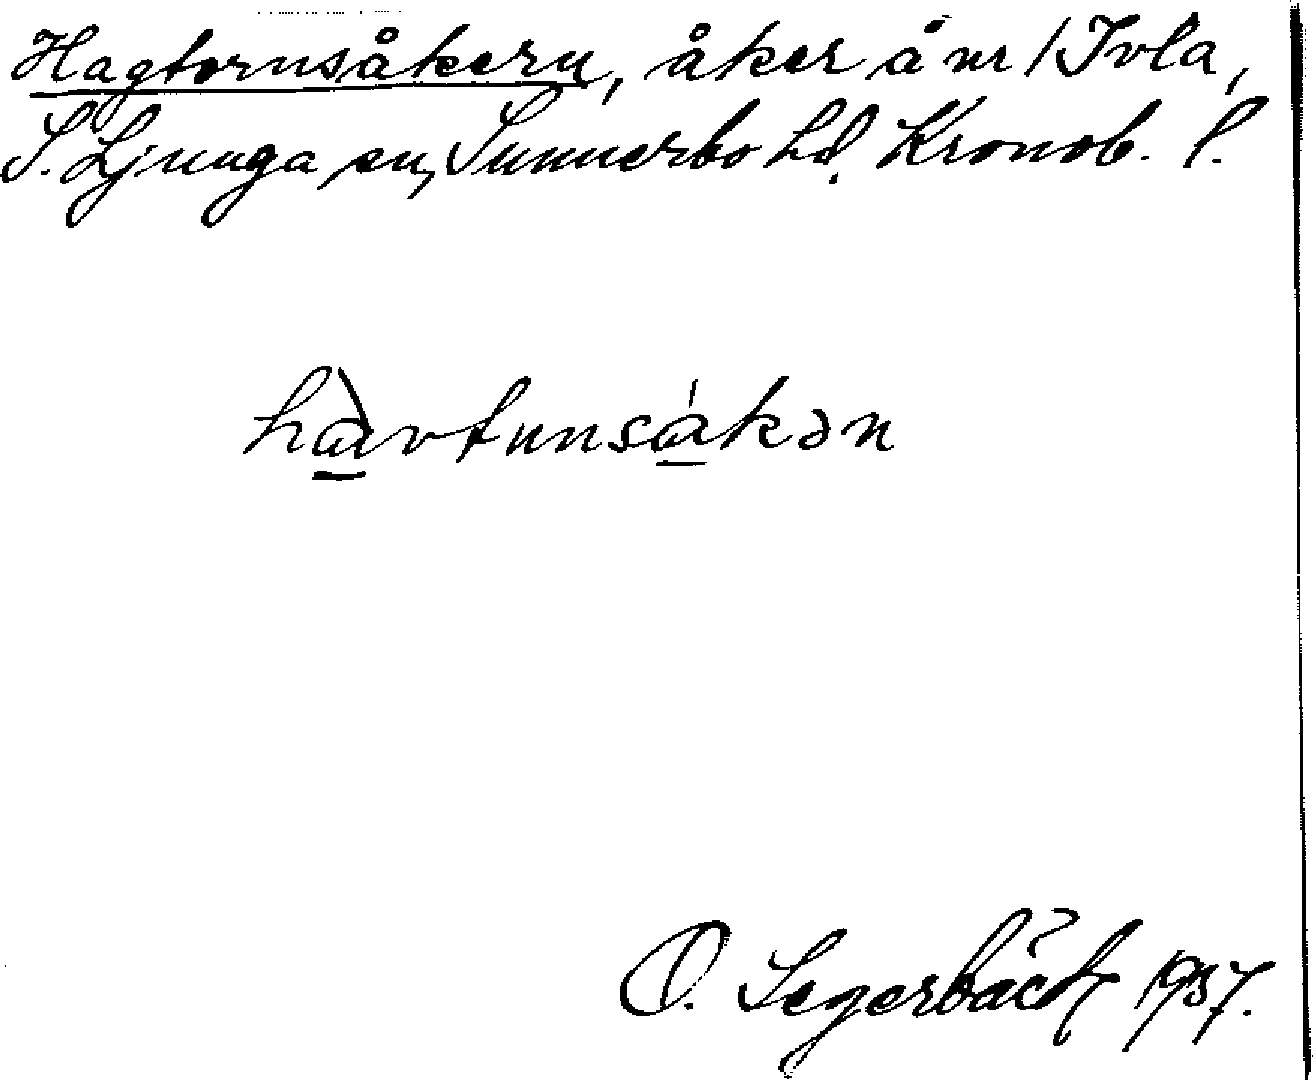 Hagtornsåkern, åker å nr 1 Ivla,
S. Ljunga sn, Sunnerbo hd, Kronob. l.
havtunsakən
O. Segerbäck 1937.